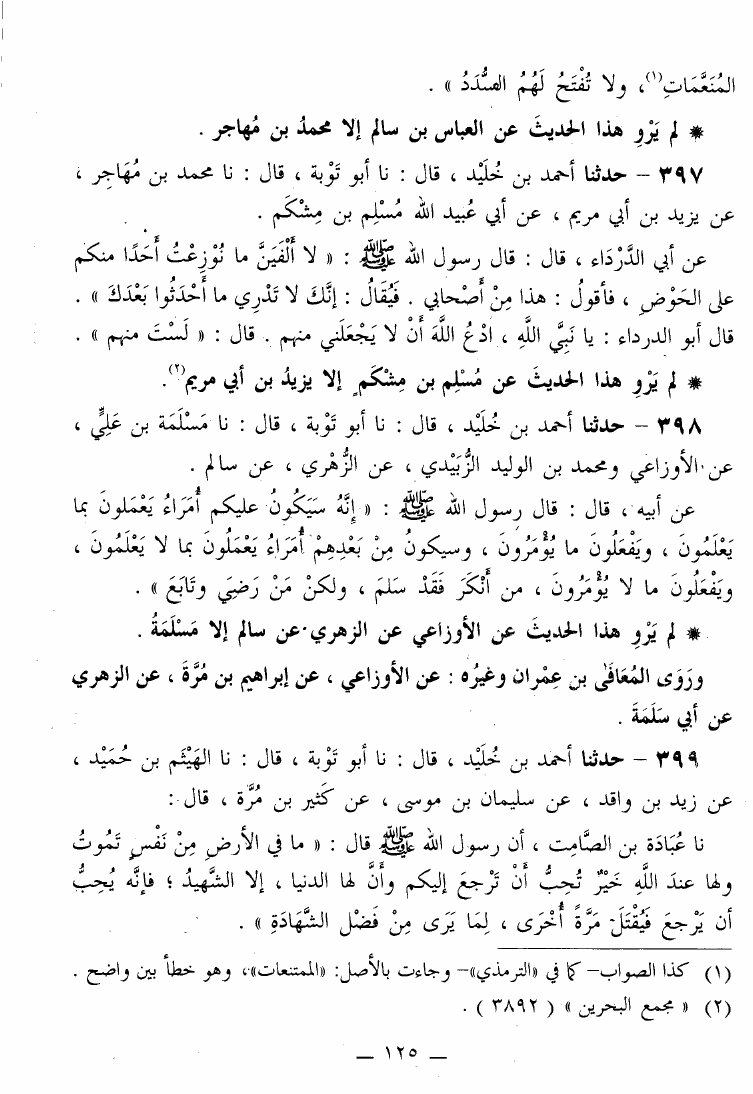 المُنَعَّمَاتِ(١)، ولا تُفْتَحُ لَهُمُ السُّدَدُ » .
* لم يَرْوِ هذا الحديثَ عن العباس بن سالم إلا محمدُ بن مُهاجر .
٣٩٧ – حدثنا أحمد بن خُلَيْد ، قال : نا أبو تَوْبة ، قال : نا محمد بن مُهَاجر ،
عن يزيد بن أبي مريم ، عن أبي عُبيد الله مُسْلِم بن مِشْكَم .
عن أبي الدَّرْدَاء ، قال : قال رسول الله ﷺ : « لا أُلْفَيَنَّ ما نُوْزِعْتُ أَحَدًا منكم
على الحَوْضِ ، فأقولُ : هذا مِنْ أَصْحابي . فَيُقَالُ : إنَّكَ لا تَدْرِي ما أَحْدَثُوا بَعْدَكَ » .
قال أبو الدرداء : يا نَبِيَّ اللَّهِ ، ادْعُ اللَّهَ أَنْ لا يَجْعَلَني منهم . قال : « لَسْتَ منهم » .
* لم يَرْوِ هذا الحديثَ عن مُسْلِم بن مِشْكَمٍ إلا يزيدُ بن أبي مريم(٢).
٣٩٨ – حدثنا أحمد بن خُلَيْد ، قال : نا أبو تَوْبة ، قال : نا مَسْلَمَة بن عَلِيٍّ ،
عن الأوزاعي ومحمد بن الوليد الزُّبَيْدي ، عن الزُّهْري ، عن سالم .
عن أبيه ، قال : قال رسول الله ﷺ : « إنَّهُ سَيَكُونُ عليكم أُمَرَاءُ يَعْمَلونَ بما
يَعْلَمُونَ ، ويَفْعَلُونَ ما يُؤْمَرُونَ ، وسيكونُ مِنْ بَعْدِهِمْ أُمَرَاءُ يَعْمَلُونَ بما لا يَعْلَمُونَ ،
ويَفْعَلُونَ ما لا يُؤْمَرُونَ ، من أَنْكَرَ فَقَدْ سَلمَ ، ولكنْ مَنْ رَضِيَ وتَابَعَ » .
* لم يَرْوِ هذا الحديثَ عن الأوزاعي عن الزهري عن سالم إلا مَسْلَمَةُ .
ورَوَى المُعَافَى بن عِمْران وغيرُه : عن الأوزاعي ، عن إبراهيم بن مُرَّةَ ، عن الزهري
عن أبي سَلَمَةَ .
٣٩٩ – حدثنا أحمد بن خُلَيْد ، قال : نا أبو تَوْبة ، قال : نا الهَيْثَم بن حُمَيْد ،
عن زيد بن واقد ، عن سليمان بن موسى ، عن كَثير بن مُرَّة ، قال :
نا عُبَادَة بن الصَّامِت ، أن رسول الله ﷺ قال : « ما في الأرضِ مِنْ نَفْسٍ تَمُوتُ
ولها عندَ اللَّهِ خَيْرٌ تُحِبُّ أَنْ تَرْجعَ إليكم وأَنَّ لها الدنيا ، إلا الشَّهيدُ ؛ فإنَّه يُحِبُّ
أن يَرْجعَ فَيُقْتَلَ مَرَّةً أُخْرَى ، لِمَا يَرَى مِنْ فَضْل الشَّهَادَةِ » .
(١) كذا الصواب– كما في «الترمذي»– وجاءت بالأصل: «الممتنعات»، وهو خطأ بين واضح .
(٢) « مجمع البحرين » ( ٣٨٩٢ ) .
— ١٢٥ —